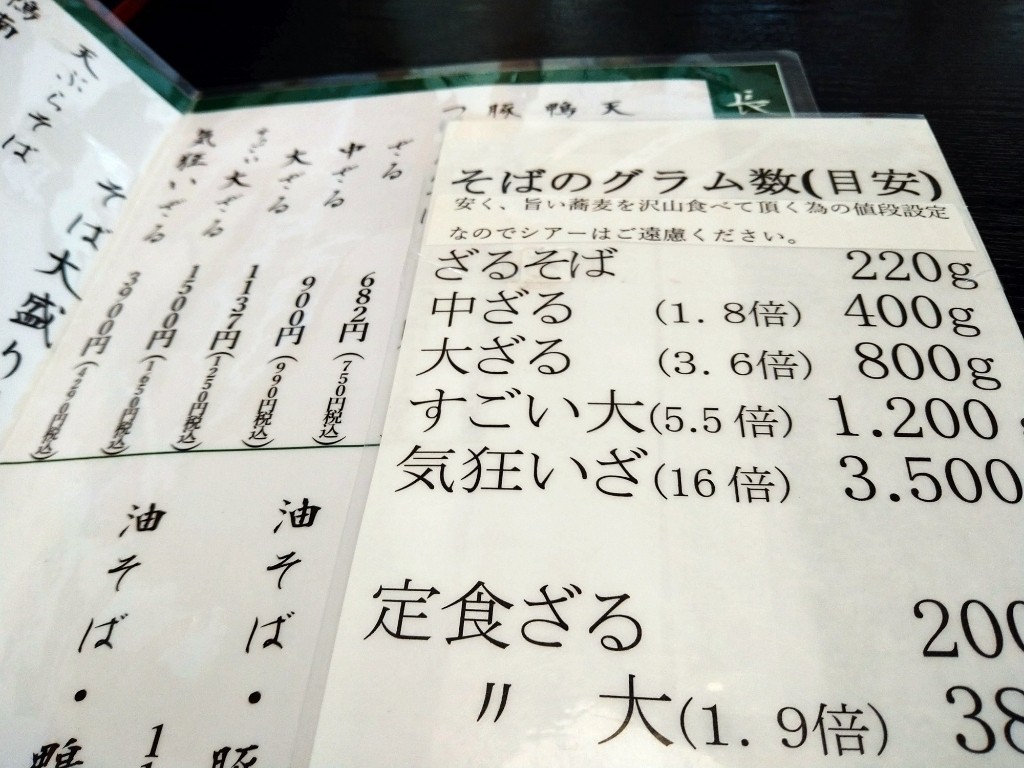 長
天
鴨
豚
つ
ざる
中ざる 682円(750円税込)
大ざる 900円(990円税込)
すごい大ざる 1137円(1250円税込)
気狂いざる 1500円(1650円税込)
3900円(4290円税込)
そば大盛り
天ぷらそば
鴨南
油そば・豚
油そば・鴨
そばのグラム数(目安)
安く、旨い蕎麦を沢山食べて頂く為の値段設定
なのでシアーはご遠慮ください。
ざるそば 220g
中ざる (1.8倍) 400g
大ざる (3.6倍) 800g
すごい大(5.5倍) 1.200
気狂いざ(16倍) 3.500
定食ざる 200
〃 大(1.9倍) 38